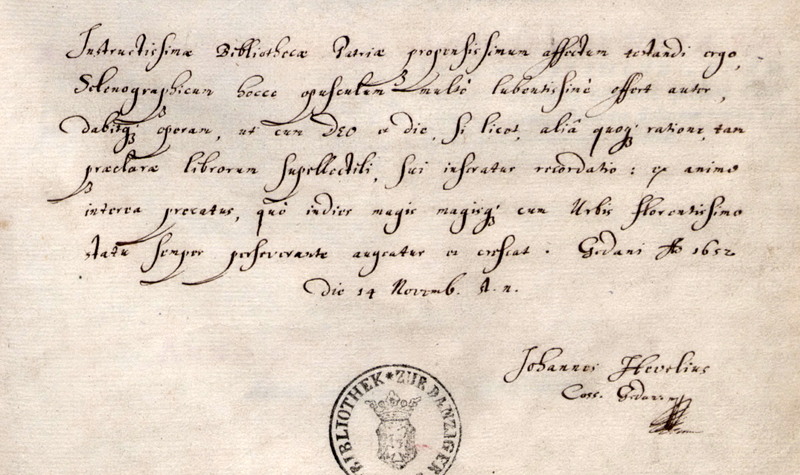 Instructissimæ Bibliothecæ Patriæ propensissimum affectum testandi ergo,
Selenographicum hocce opusculum multò lubentissimè offert autor,
dabitq; operam, ut cum DEO et die, si licet, aliâ quoq; ratione, tam
præclaræ librorum supellectili, sui inseratur recordatio: ex animo
interea precatus, quò indies magis magisq; cum Urbis florentissimo
statu semper perseverante augeatur et crescat. Gedani Aº 1652
die 14 Novemb. st. n.
Johannes Hevelius
Coss. Gedanen
BIBLIOTHEK * ZUR DANZIGER